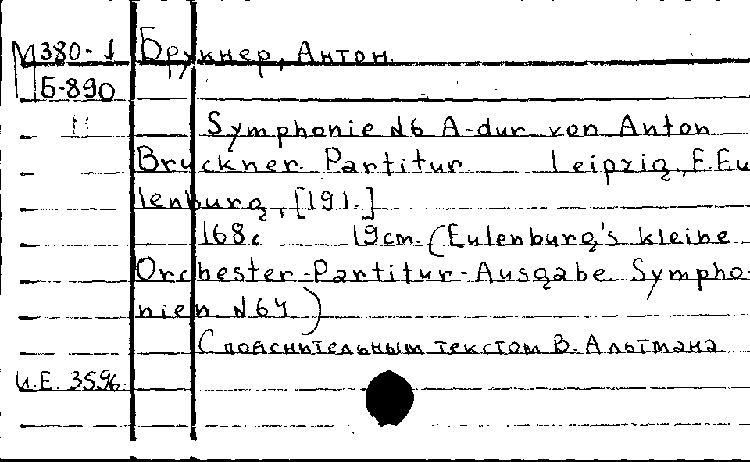 М380-1 Брукнер, Антон.
Б-890
Н Symphonie №6 A-dur von Anton
Bruckner. Partitur Leipzig, E.Eu
lenburg, [191.]
168с 19cm. (Eulenburg's kleine
Orchester-Partitur-Ausgabe. Sympho-
nien №64)
С пояснительным текстом В. Альтмана
И.Е. 3596.